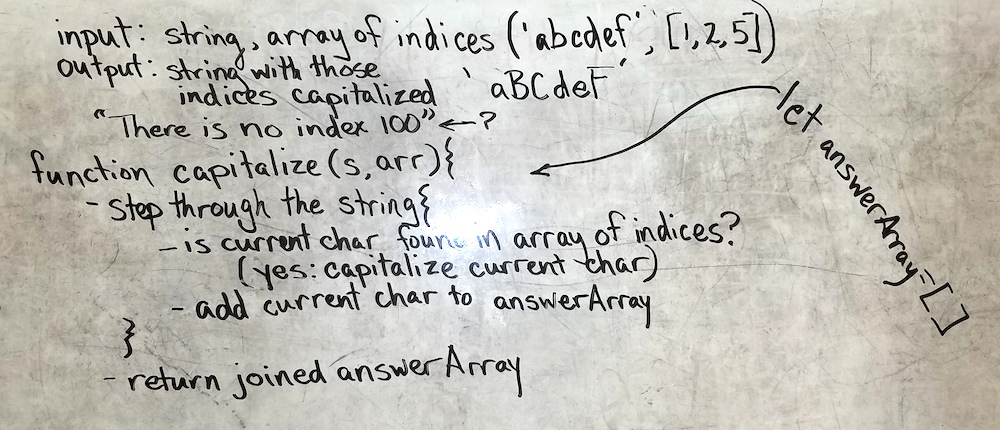 input: string, array of indices ('abcdef', [1,2,5])
output: string with those
indices capitalized 'aBCdeF'
"There is no index 100" ←?
function capitalize(s, arr){
let answerArray=[]
- step through the string{
- is current char found in array of indices?
(yes: capitalize current char)
- add current char to answerArray
}
- return joined answerArray